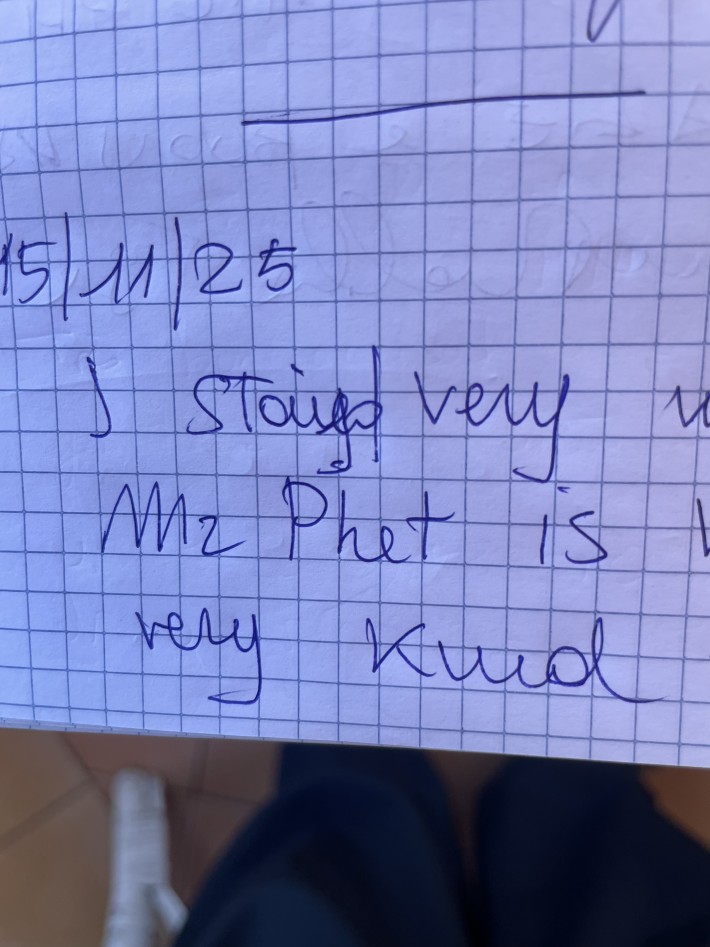 15/11/25
I stayed very
Mr Phet is
very kind